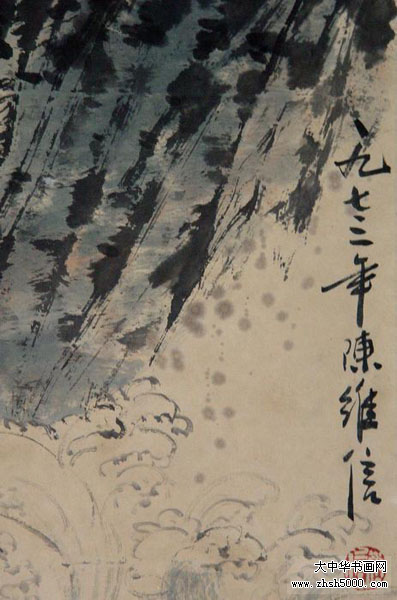 一九七三年陳維信
大中华书画网
www.zhsh5000.com